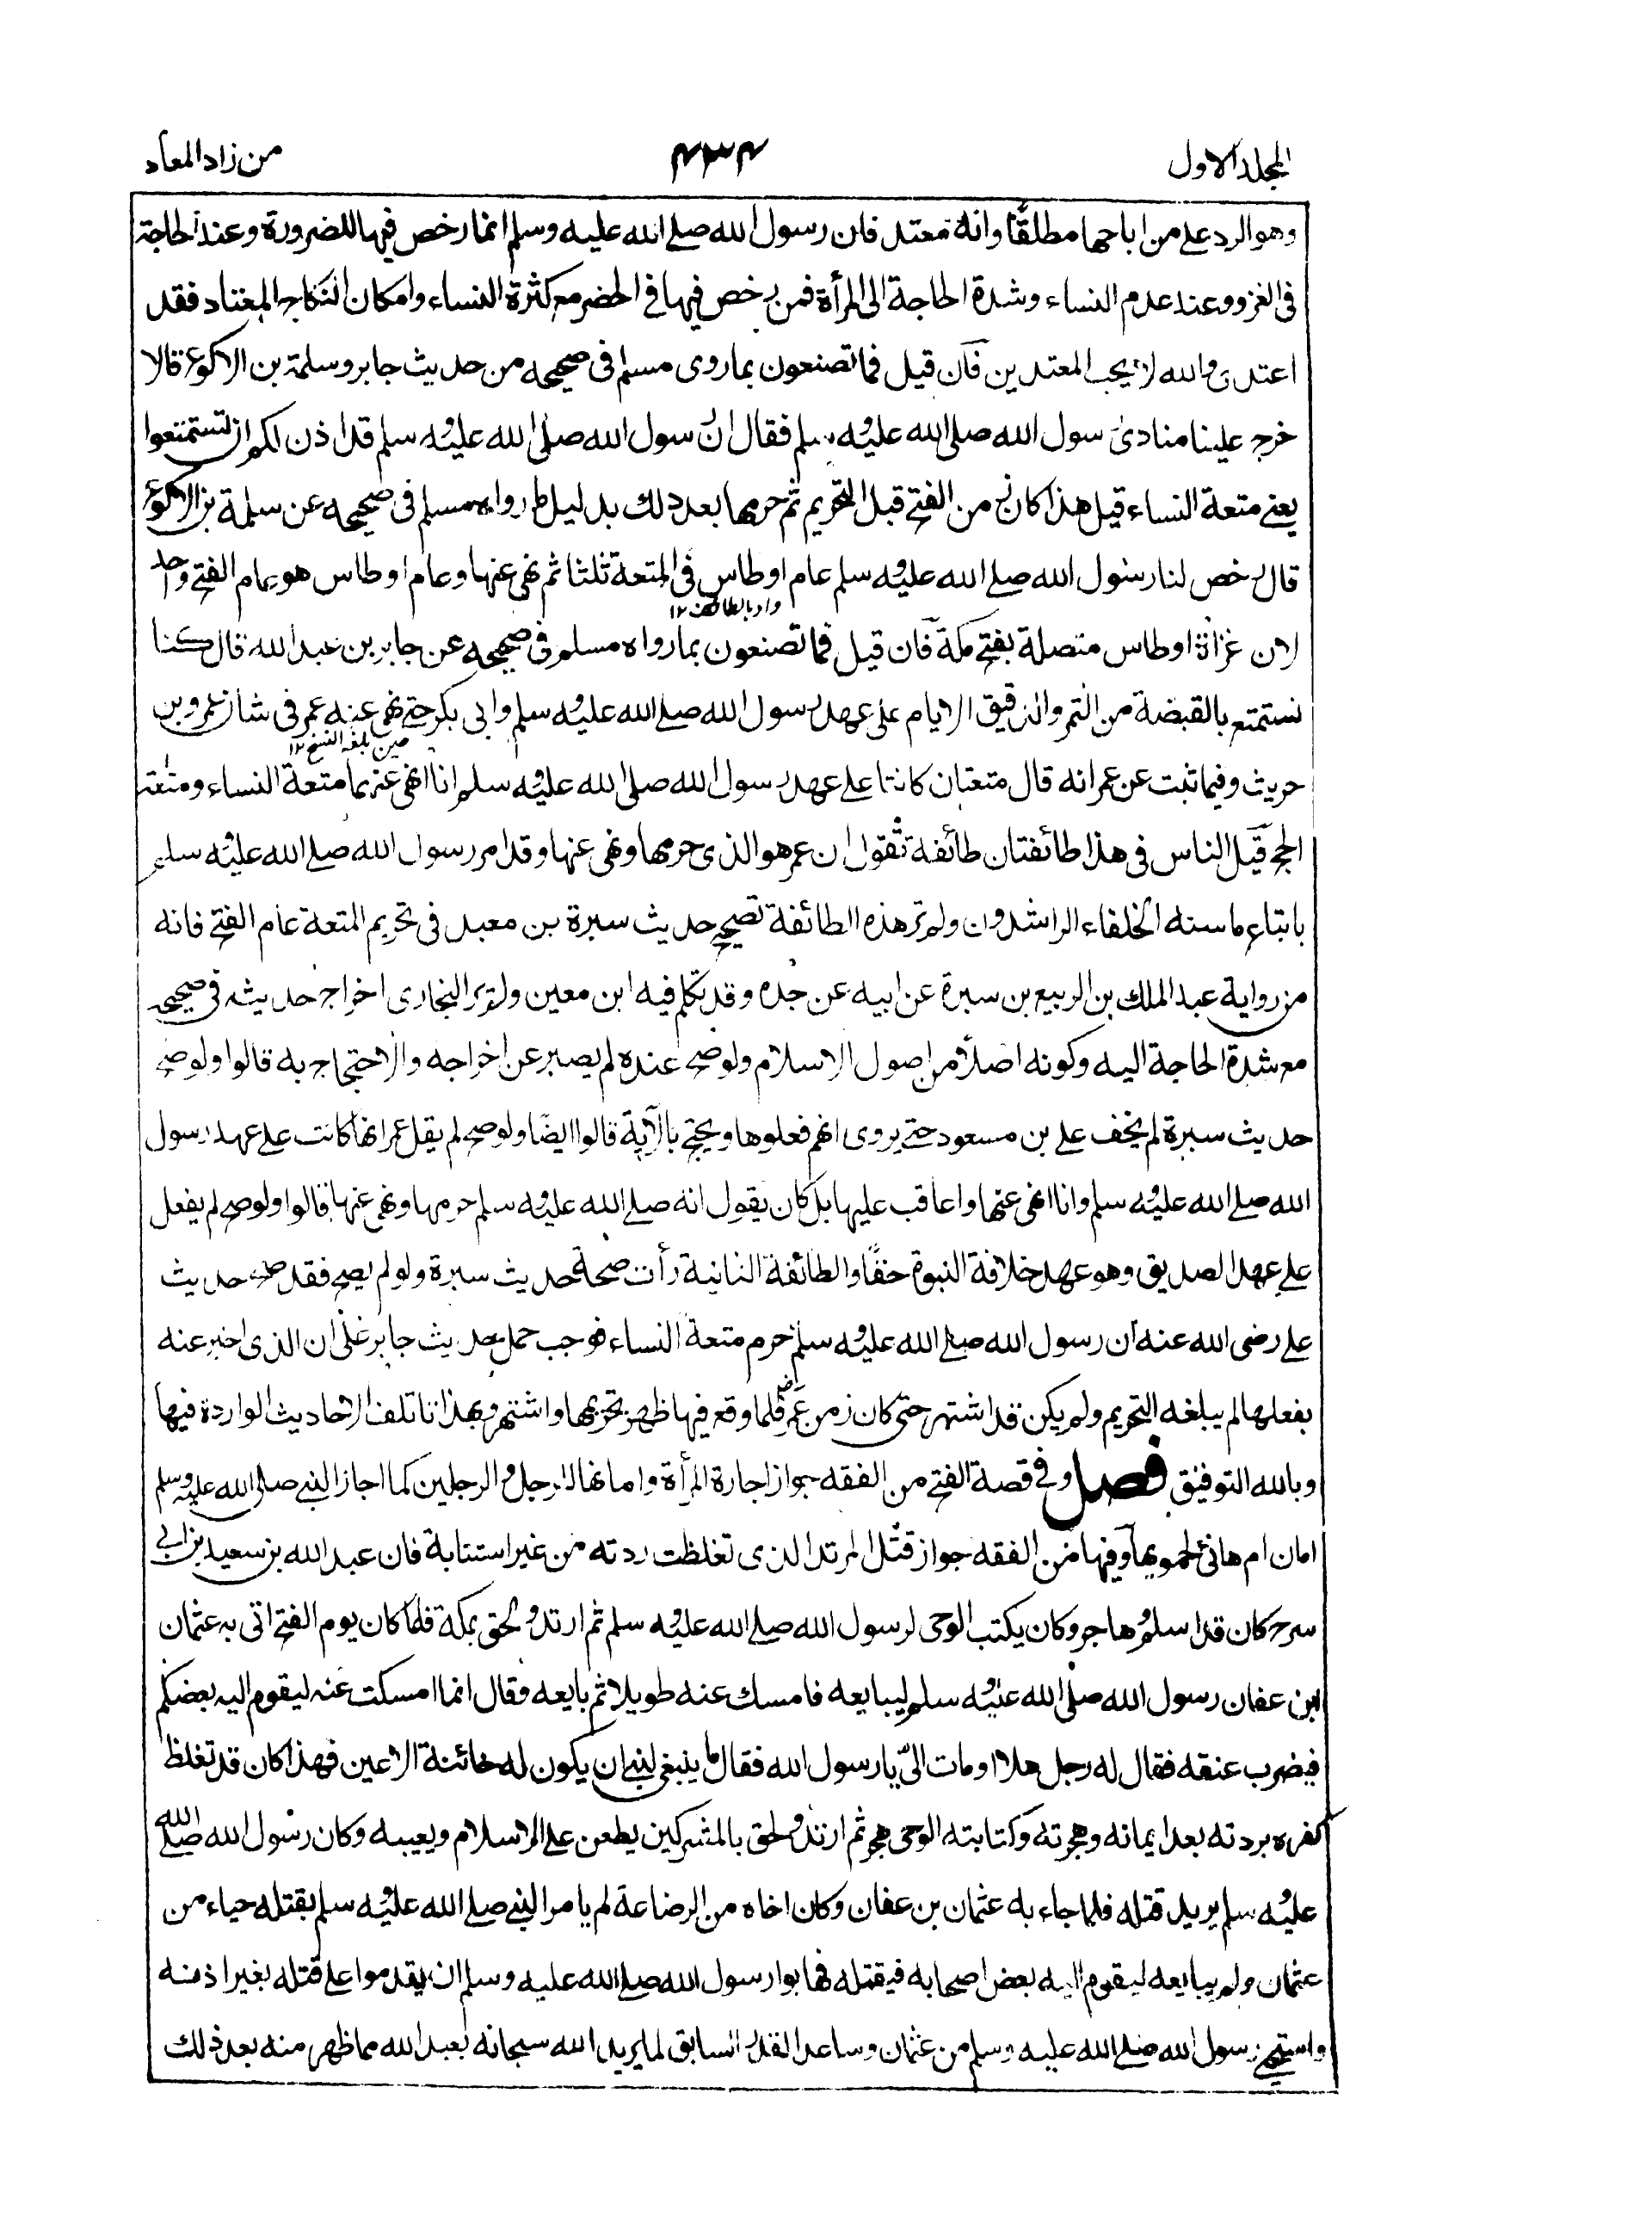 المجلد الاول
٤٣٤
من زاد المعاد
وهو الرد على من اباحها مطلقًا وانه معتد فان رسول الله صلے الله عليه وسلم انما رخص فيها للضرورة وعند الحاجة
فى الغزو وعند عدم النساء وشدة الحاجة الى المرأة فمن رخص فيها فى الحضر مع كثرة النساء وامكان النكاح المعتاد فقد
اعتدى والله لا يحب المعتدين فان قيل فما تصنعون بما روى مسلم فى صحيحه من حديث جابر وسلمة بن الاكوع قالا
خرج علينا منادى رسول الله صلى الله عليه وسلم فقال ان رسول الله صلى الله عليه وسلم قد اذن لكم ان تستمتعوا
يعنے متعة النساء قيل هذا كان زمن الفتح قبل التحريم ثم حرمها بعد ذلك بدليل ما رواه مسلم فى صحيحه عن سلمة بن الاكوع
قال رخص لنا رسول الله صلے الله عليه وسلم عام اوطاس فى المتعة ثلثا ثم نهى عنها وعام اوطاس هو عام الفتح واحد
واد بالطائف ١٢
لان غزاة اوطاس متصلة بفتح مكة فان قيل فما تصنعون بما رواه مسلم فى صحيحه عن جابر بن عبد الله قال كنا
نستمتع بالقبضة من التمر والدقيق الايام على عهد رسول الله صلى الله عليه وسلم وابى بكر حتے نهى عنه عمر فى شان عمرو بن
حين بلغه النسخ ١٢
حريث وفيما ثبت عن عمر انه قال متعتان كانتا على عهد رسول الله صلى الله عليه وسلم انا انهى عنهما متعة النساء ومتعة
الحج قيل الناس فى هذا طائفتان طائفة تقول ان عمر هو الذى حرمها ونهى عنها وقد امر رسول الله صلے الله عليه وسلم
باتباع ما سنه الخلفاء الراشدون ولم تر هذه الطائفة تصحيح حديث سبرة بن معبد فى تحريم المتعة عام الفتح فانه
من رواية عبد الملك بن الربيع بن سبرة عن ابيه عن جده وقد تكلم فيه ابن معين ولم ير البخارى اخراج حديثه فى صحيحه
مع شدة الحاجة اليه وكونه اصلا من اصول الاسلام ولو صح عنده لم يصبر عن اخراجه والاحتجاج به قالوا ولو صح
حديث سبرة لم يخف على بن مسعود حتے يروى انهم فعلوها ويحتج بالآية قالوا ايضًا ولو صح لم يقل عمر انها كانت على عهد رسول
الله صلے الله عليه وسلم وانا انهى عنها واعاقب عليها بل كان يقول انه صلے الله عليه وسلم حرمها ونهى عنها قالوا ولو صح لم يفعل
على عهد الصديق وهو عهد خلافة النبوة حقًا والطائفة الثانية رأت صحة حديث سبرة ولو لم يصح فقد صح حديث
على رضى الله عنه ان رسول الله صلے الله عليه وسلم حرم متعة النساء فوجب حمل حديث جابر على ان الذى اخبر عنه
بفعلها لم يبلغه التحريم ولم يكن قد اشتهر حتى كان زمن عمر فلما وقع فيها ظهر تحريمها واشتهر وبهذا تاتلف الاحاديث الواردة فيها
وبالله التوفيق فصل وفى قصة الفتح من الفقه جواز اجارة المرأة وامانها للرجل والرجلين كما اجاز النبے صلى الله عليه وسلم
امان ام هانئ لحمويها وفيها من الفقه جواز قتل المرتد الذى تغلظت ردته من غير استتابة فان عبد الله بن سعيد بن ابى
سرح كان قد اسلم وهاجر وكان يكتب الوحى لرسول الله صلے الله عليه وسلم ثم ارتد ولحق بمكة فلما كان يوم الفتح اتى به عثمان
ابن عفان رسول الله صلى الله عليه وسلم ليبايعه فامسك عنه طويلا ثم بايعه وقال انما امسكت عنه ليقوم اليه بعضكم
فيضرب عنقه فقال له رجل هلا اومات الىّ يا رسول الله فقال ما ينبغى لنبے ان يكون له خائنة الاعين فهذا كان قد تغلظ
كفره بردته بعد ايمانه وهجرته وكتابته الوحى ثم ارتد ولحق بالمشركين يطعن على الاسلام ويعيبه وكان رسول الله صلے الله
عليه وسلم يريد قتله فلما جاء به عثمان بن عفان وكان اخاه من الرضاعة لم يامر النبے صلے الله عليه وسلم بقتله حياء من
عثمان ولم يبايعه ليقوم اليه بعض اصحابه فيقتله فهابوا رسول الله صلے الله عليه وسلم ان يقدموا على قتله بغير اذنه
واستحيى رسول الله صلے الله عليه وسلم من عثمان وساعد القدر السابق لما يريد الله سبحانه بعبد الله مما ظهر منه بعد ذلك